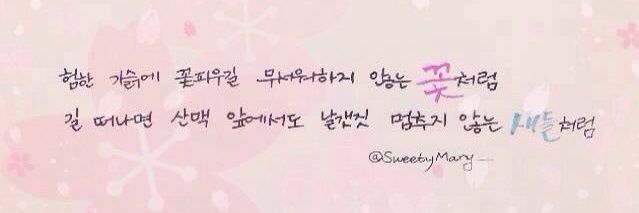 험한 가슭에 꽃피우길 무서워하지 않는 꽃처럼
길 떠나면 산맥 앞에서도 날갯짓 멈추지 않는 새들처럼
@SweetyMary